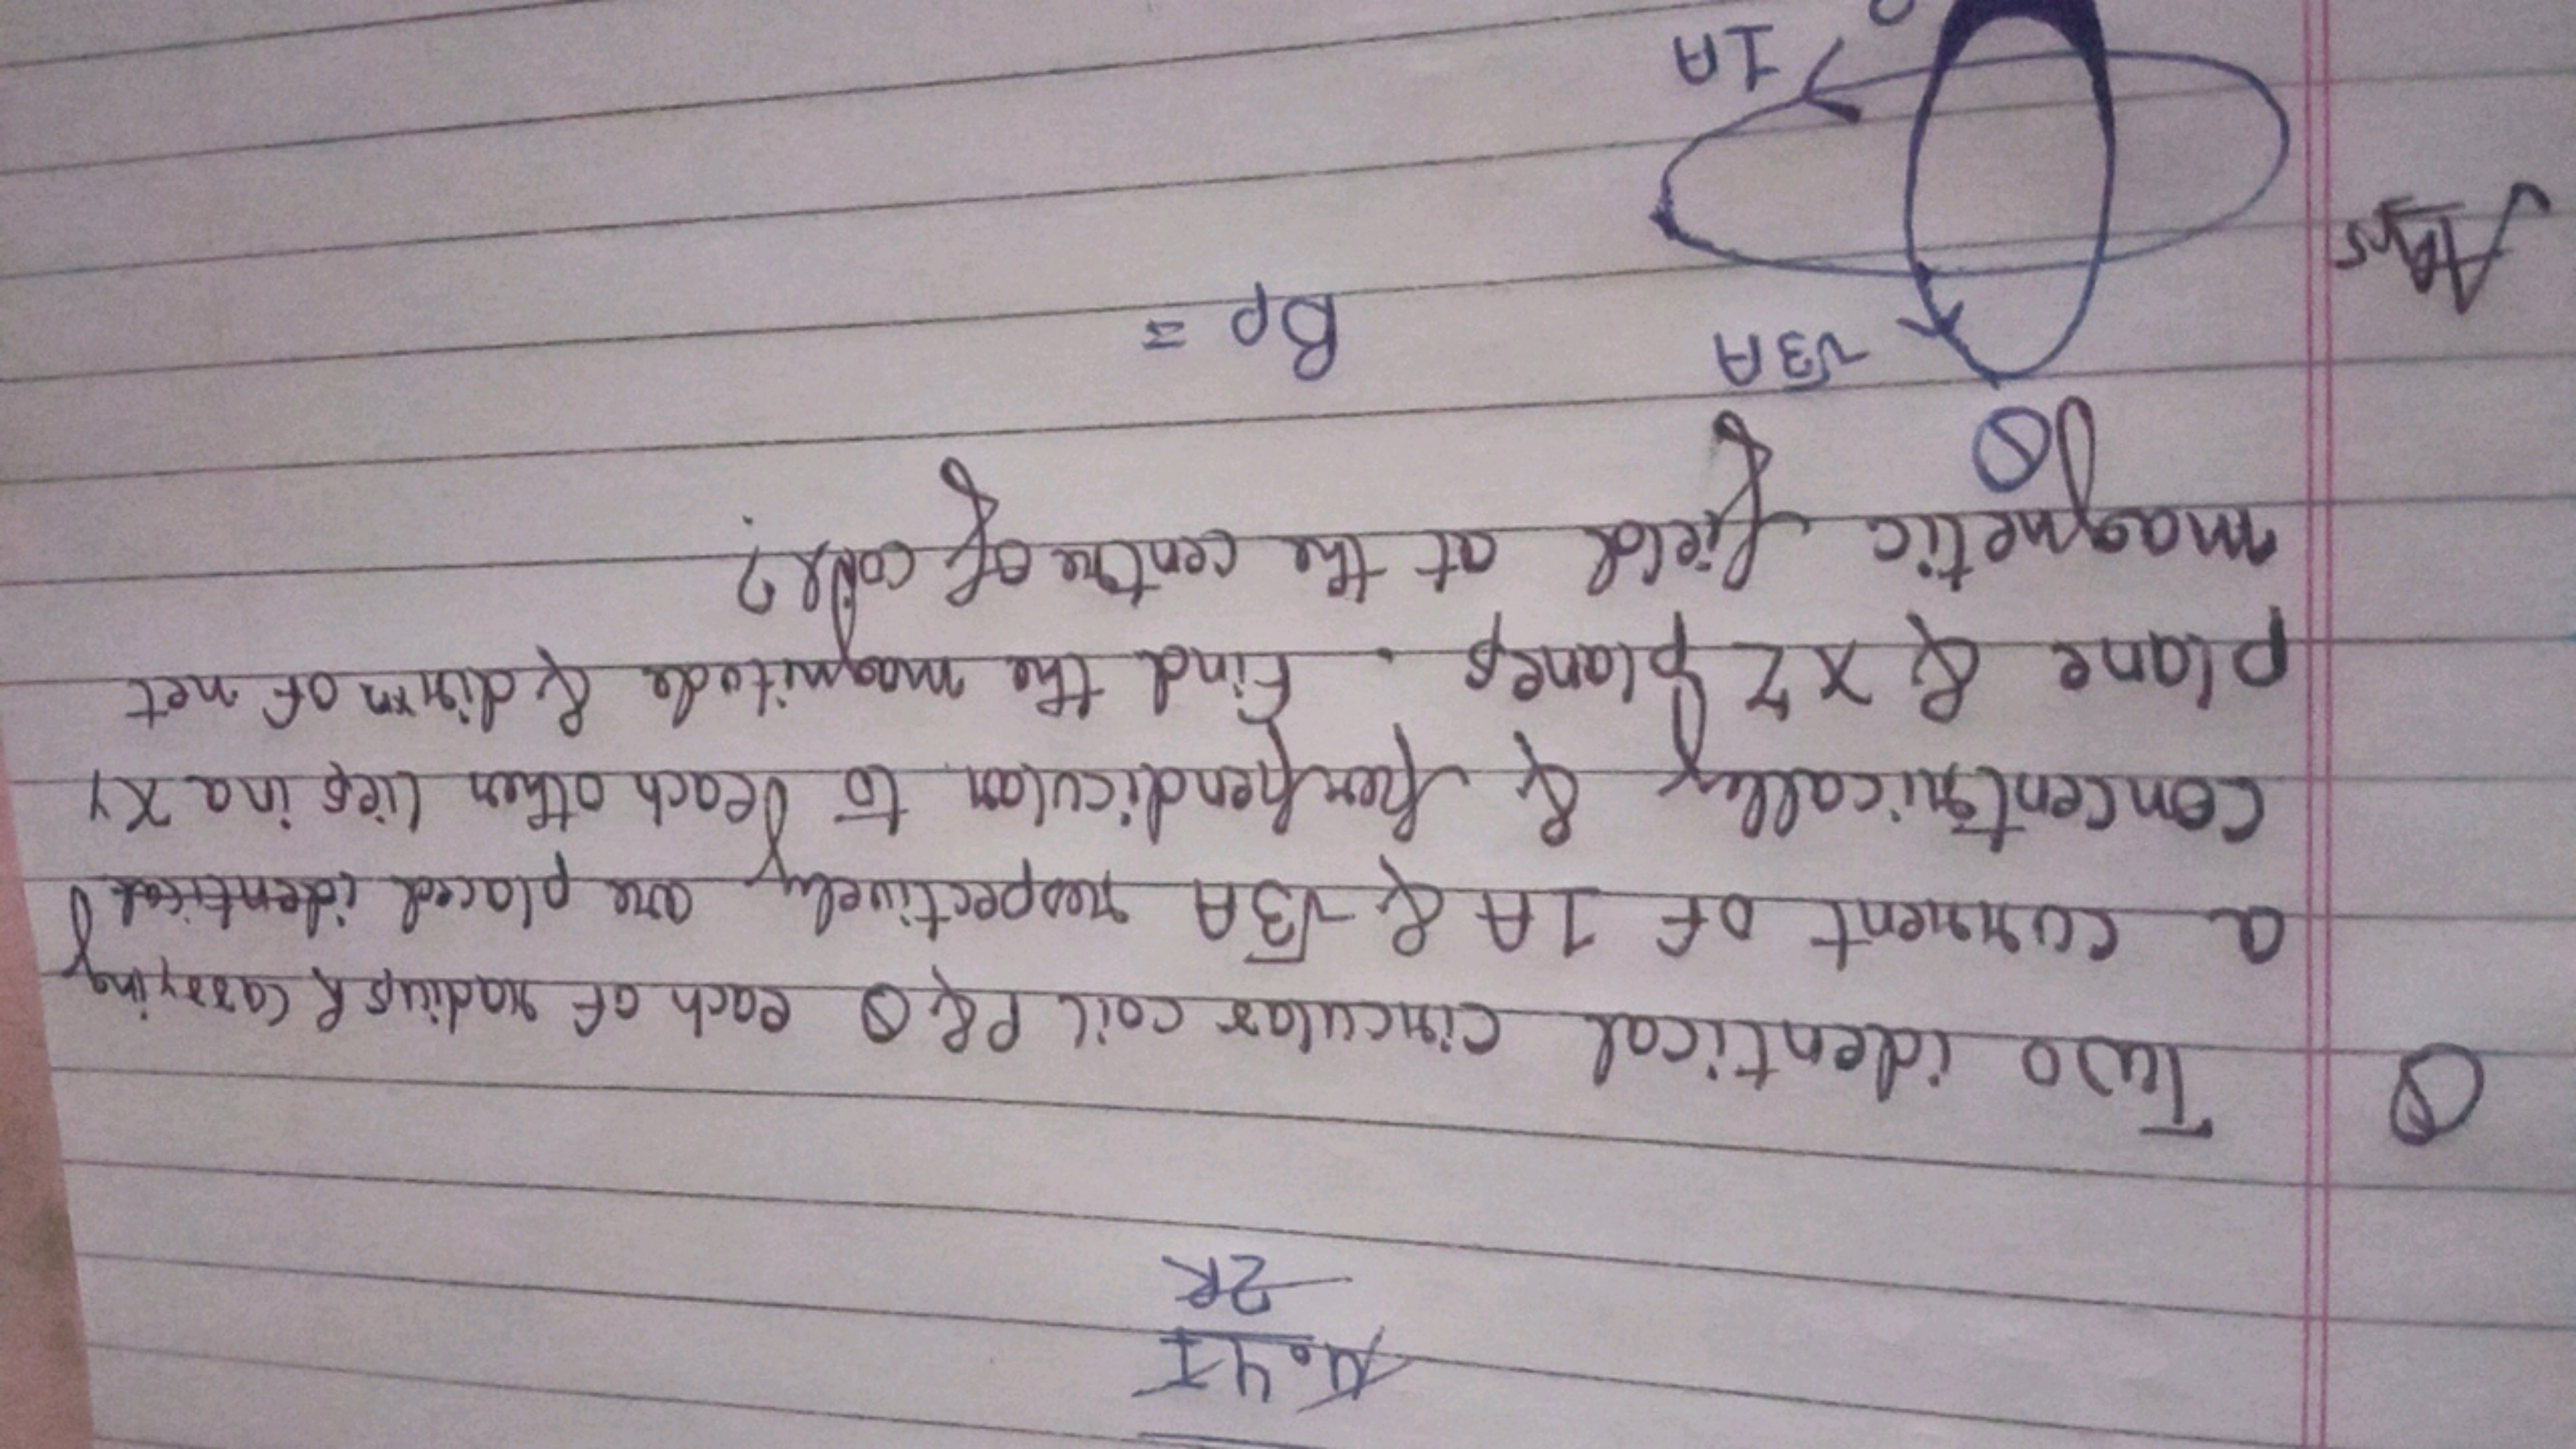 μ₀ 4I
2R
Q Two identical circular coil P & Q each of radius R carrying
a current of 1A & √3A respectively are placed identical
concentrically & perpendicular to each other lies in a XY
plane & XZ planes. Find the magnitude & dirxn of net
magnetic field at the centre of coil?
Q
Ans √3A Bp =
1A